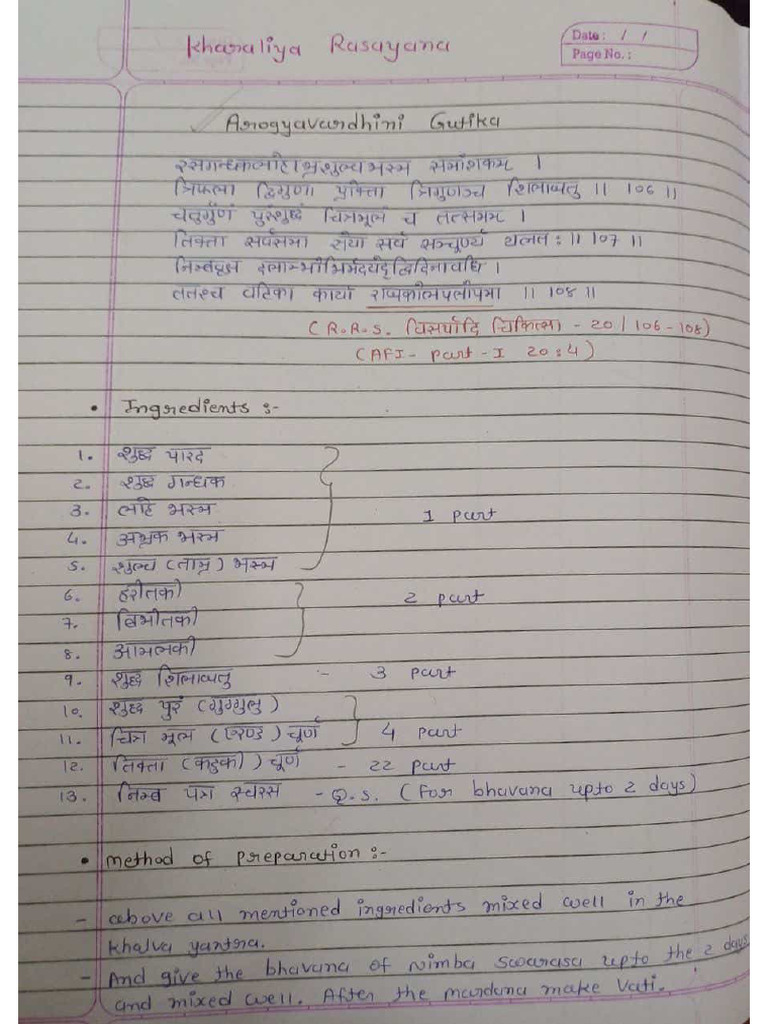 Kharaliya Rasayana
Date: / /
Page No.:
Arogyavardhini Gutika
रसगन्धकलोहाभ्रशुल्वभस्म समांशकम् ।
त्रिफला द्विगुणा प्रोक्ता त्रिगुणञ्च शिलाजतु ॥ 106 ॥
चतुर्गुणं पुरंशुद्धं चित्रमूलं च तत्समम् ।
तिक्ता सर्वसमा ज्ञेया सर्वं सञ्चूर्ण्य यत्नतः ॥ 107 ॥
निम्बवृक्ष दलाम्भोभिर्मर्दयेद्द्विदिनावधि ।
ततश्च वटिका कार्या ॥ 108 ॥
(R.R.S. विसर्पादि चिकित्सा - 20 / 106-108)
(AFI - part - I 20:4)
• Ingredients :-
1. शुद्ध पारद
2. शुद्ध गन्धक
3. लोह भस्म
1 part
4. अभ्रक भस्म
5. शुल्व (ताम्र) भस्म
6. हरीतकी
2 part
7. बिभीतकी
8. आमलकी
9. शुद्ध शिलाजतु :- 3 part
10. शुद्ध पुरं (गुग्गुलु)
11. चित्र मूल (एरण्ड) चूर्ण 4 part
12. तिक्ता (कटुकी) चूर्ण - 22 part
13. निम्ब पत्र स्वरस - Q.S. (For bhavana upto 2 days)
• method of preparation :-
- above all mentioned ingredients mixed well in the
khalva yantra.
- And give the bhavana of Nimba swarasa upto the 2 days
and mixed well. After the mardana make Vati.